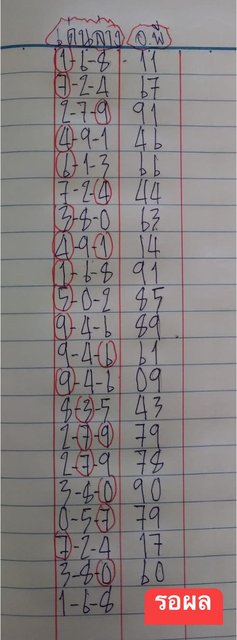 เด่นกลาง อ.พี
1-6-8 - 11
7-2-4 67
2-7-9 91
4-9-1 46
6-1-3 66
7-2-4 44
3-8-0 63
4-9-1 14
1-6-8 91
5-0-2 85
9-4-6 89
9-4-6 61
9-4-6 09
8-3-5 43
2-7-9 79
2-7-9 78
3-8-0 90
0-5-7 79
7-2-4 17
3-8-0 60
1-6-8 รอผล